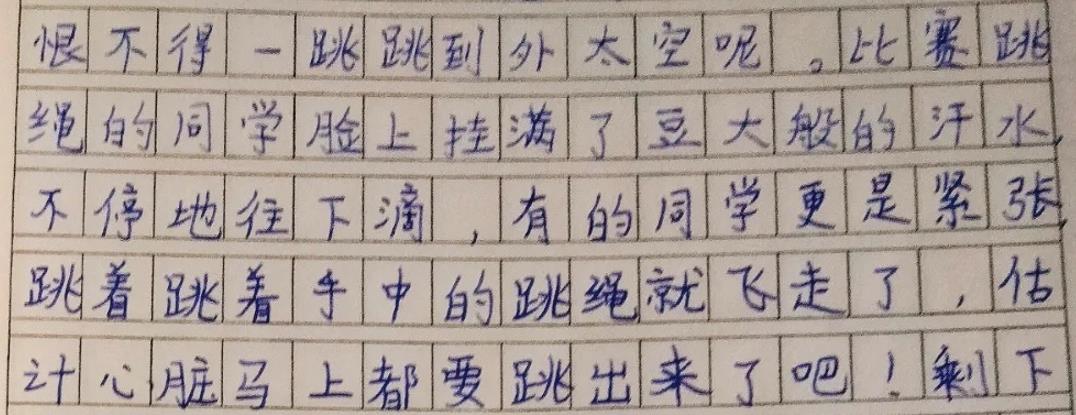 恨不得一跳跳到外太空呢。比赛跳
绳的同学脸上挂满了豆大般的汗水,
不停地往下滴,有的同学更是紧张,
跳着跳着手中的跳绳就飞走了,估
计心脏马上都要跳出来了吧!剩下